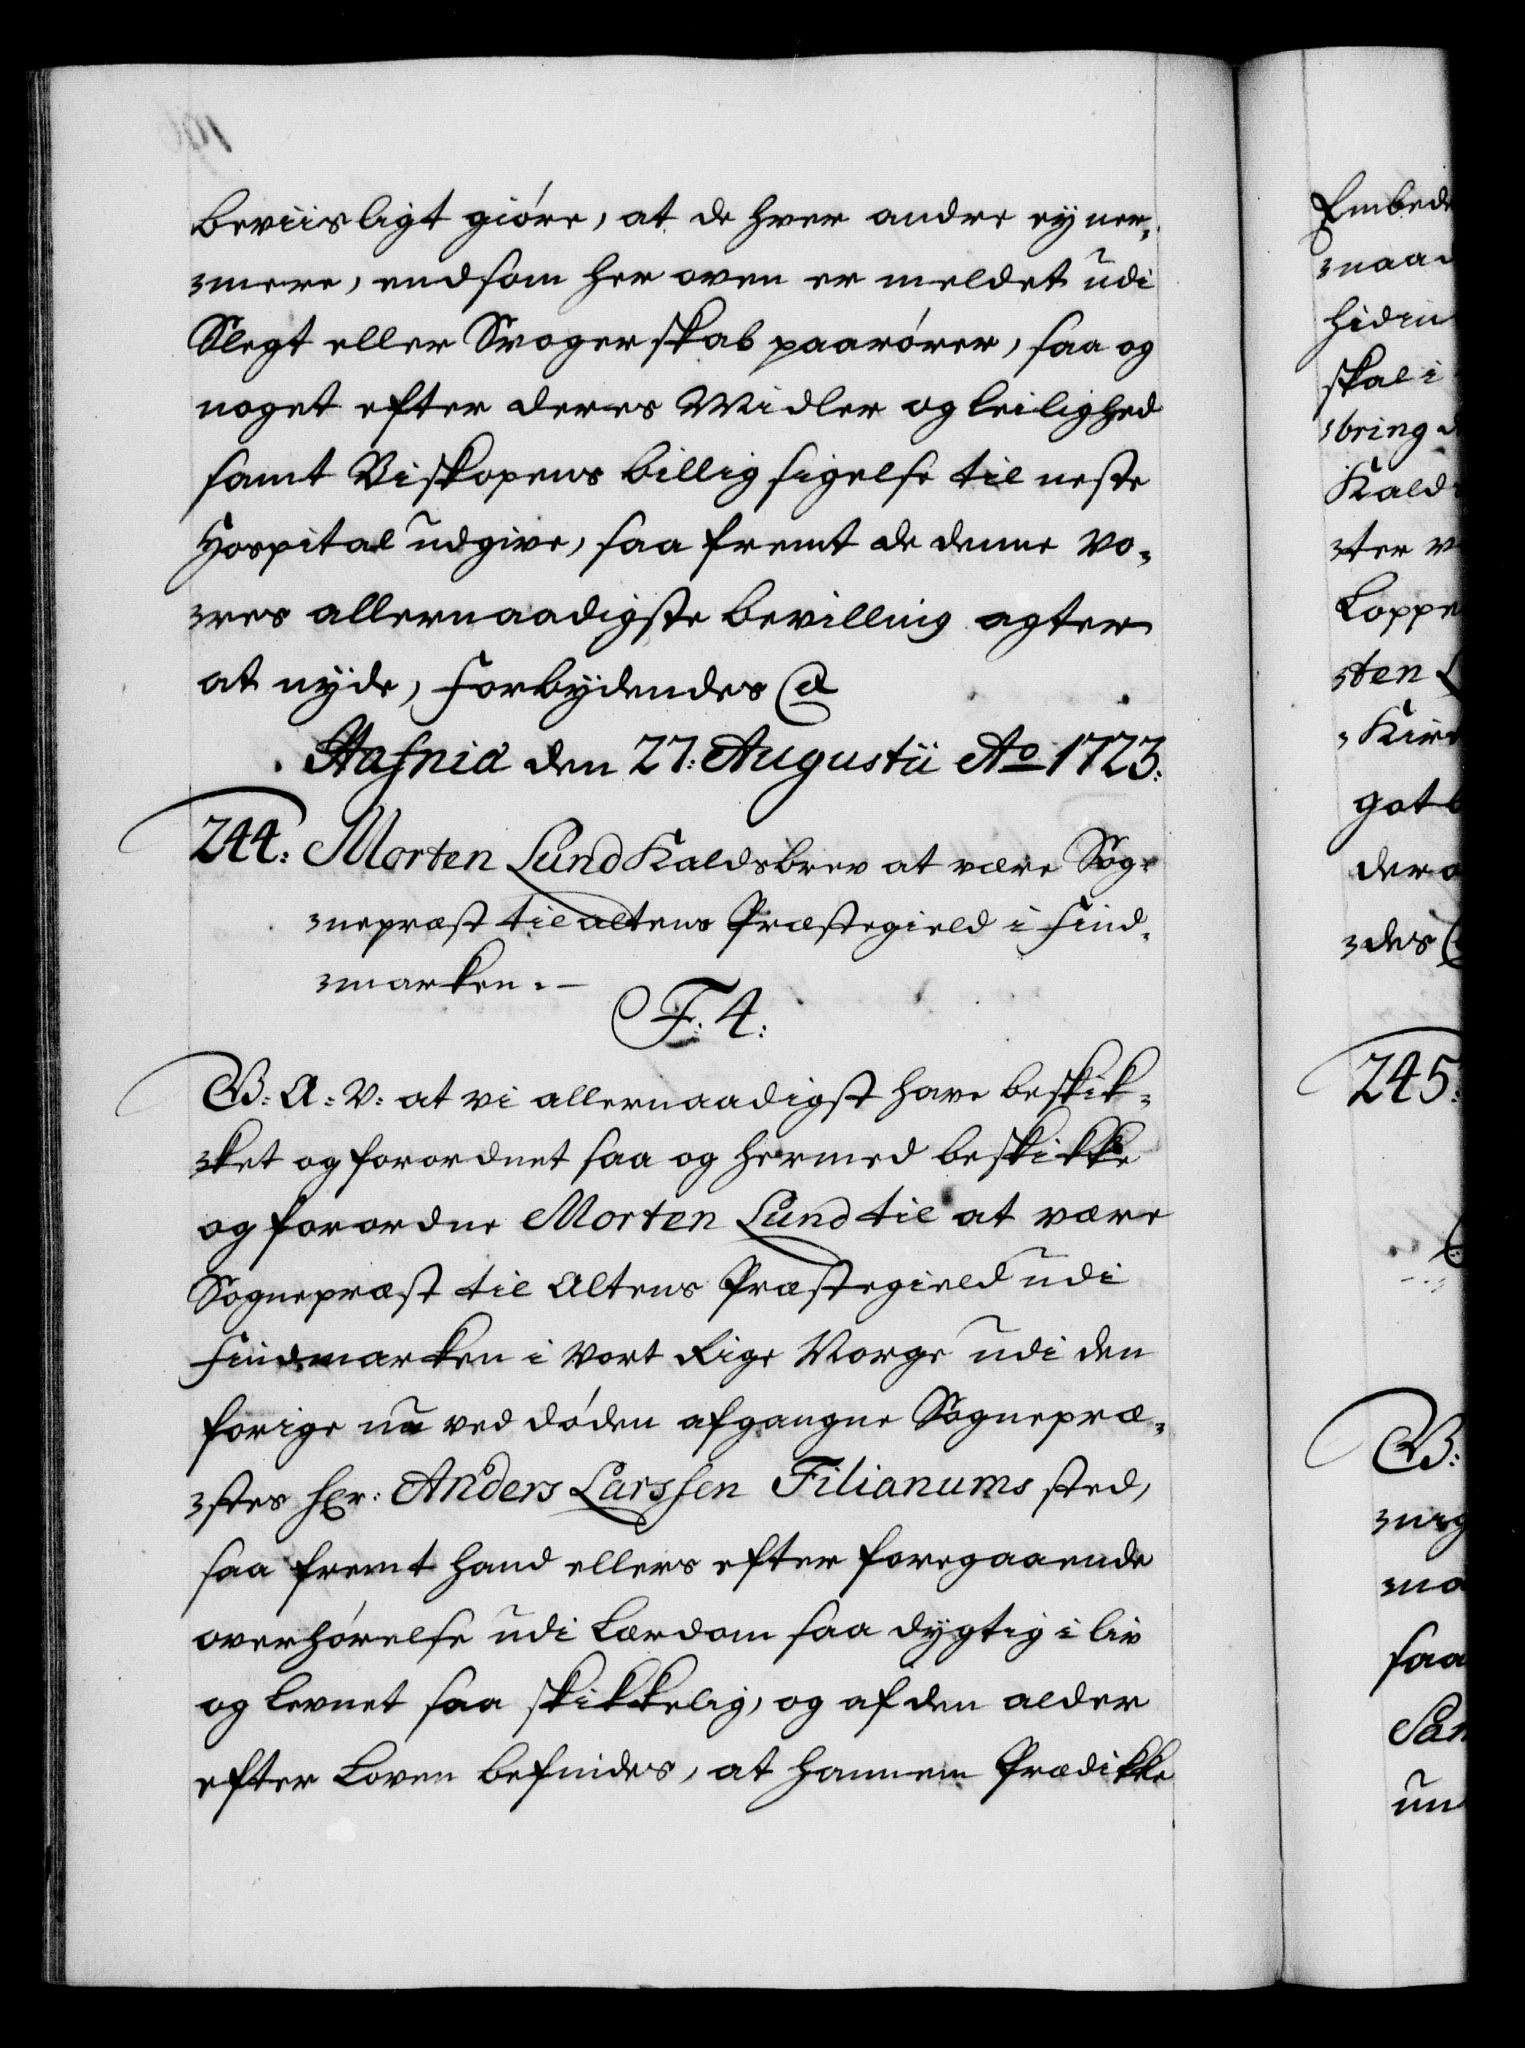 beviisligt giöre, at de hver andre ey ner-
mere, end som her oven er meldet udi
Slegt eller Svogerskab paarörer, saa og
noget efter deres Midler og leilighed
samt Biskopens billig sigelse til neste
Hospital udgive, saa fremt de denne Vo-
res allernaadigste bevilling agter
at nyde, Forbydendes &
Hafnia den 27: Augustii Ao 1723:
244: Morten Lund Kaldsbrev at være Sog-
nepræst til altens Præstegield i Find-
marken.-
F. 4:
G: A: V: at vi allernaadigst have beskik-
ket og forordnet saa og hermed beskikke
og forordne Morten Lund til at være
Sognepræst til Altens Præstegield udi
Findmarken i Vort Rige Norge udi den
forige nu ved döden afgangne Sognepræ-
stes Hr: Anders Larssen Filianums sted,
saa fremt hand ellers efter foregaaende
overhörelse udi Lærdom saa dygtig i liv
og levnet saa skikkelig, og af den alder
efter Loven befindes, at hannem Prædikke
Embede
naad
hidin
skal i
bring
Kald
ter
Loppe
sten
Kirk
got
der
des
245:
G:
saa
un